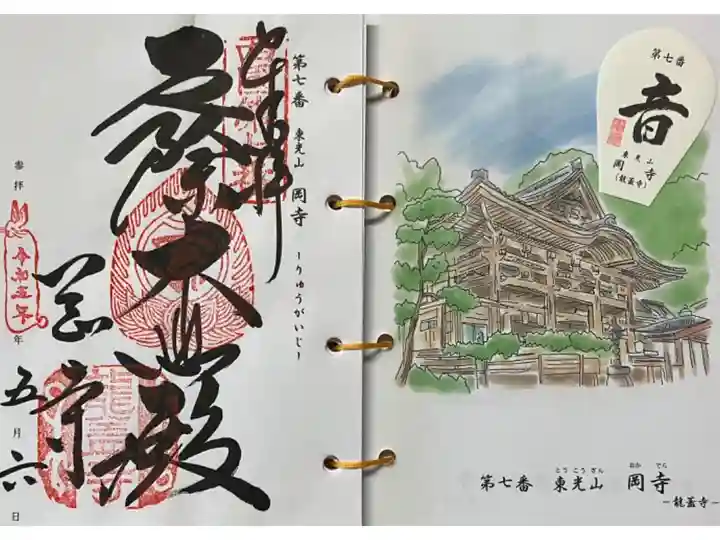 第七番 東光山 岡寺 ーりゅうがいじー
奉拝
大悲殿
岡寺
参拝 令和五年 年 五月六日
第七番
音
東光山
岡寺
(龍蓋寺)
とうこうざん おか
第七番 東光山 岡寺
ー龍蓋寺ー